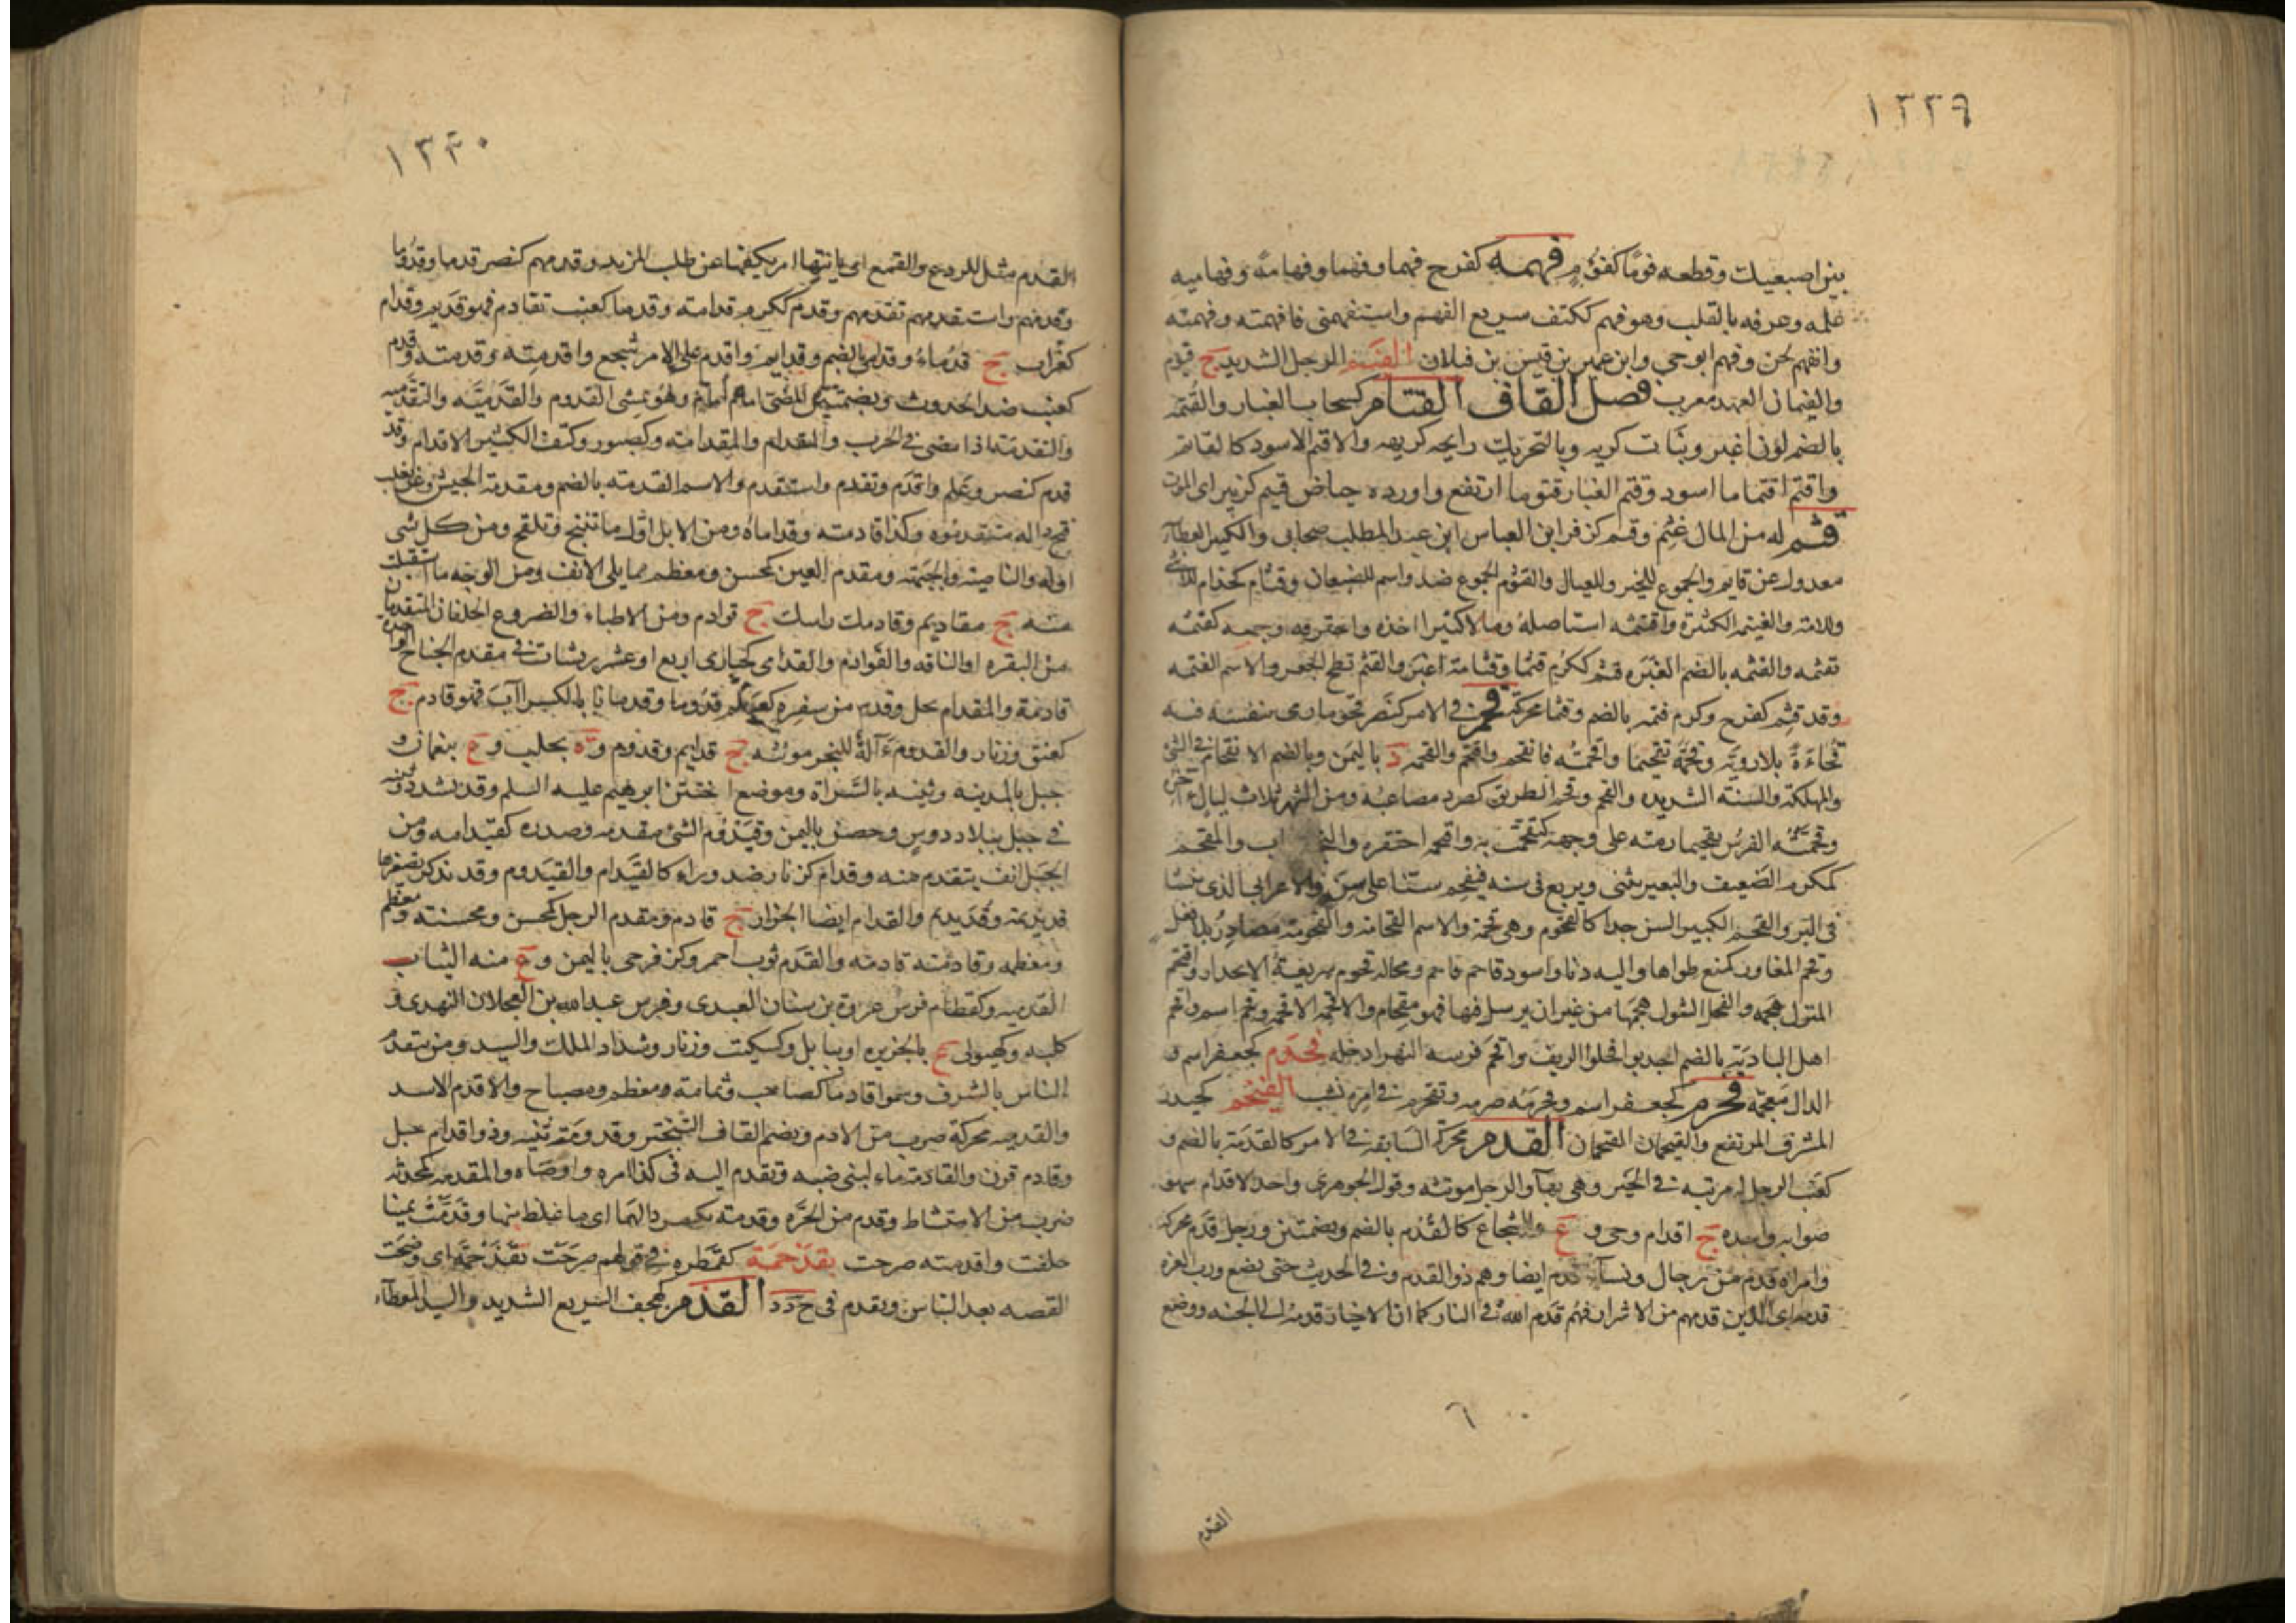 ١٣٣٩
بين اصبعيك وقطعه فوما كفوم فهمه كفرح فهما وفهما وفهامة وفهاميه
علمه وعرفه بالقلب وهو فهم ككتف سريع الفهم واستفهمنى فافهمته وفهمته
وانفهم لحن وفهم ابو حي وابن عمرو بن قيس بن عيلان الفيم الرجل الشديد ج فيوم
والفيمان العهد معرب فصل القاف القتام كسحاب الغبار والقتمه
بالضم لون اغبر ونبات كريه وبالتحريك رايحه كريهه والاقتم الاسود كالقاتم
واقتم اقتماما اسود وقتم الغبار قتوما ارتفع واورده حياض قتيم كزبير اى الموت
قثم له من المال غثم وقثم كزفر ابن العباس ابن عبد المطلب صحابى والكثير العطاء
معدول عن قاثم والجموع للخير وللعيال والقثوم الجموع ضد واسم للضبعان وقثام كحذام للانثى
وللامة والغنيمه الكثيرة واقتثمه استاصله ومالا كثيرا اخذه واجترفه وجمعه كقثمه
يقثمه والقثمه بالضم الغبره قثم ككرم قثما وقثامة اغبر والقثم لطخ الجعر والاسم القثمه
وقد قثم كفرح وكرم قثمه بالضم وقثما محركة قحم فى الامر كنصر قحوما رمى بنفسه فيه
فجاءة بلا رويه وقحمه تقحيما واقحمته فانقحم واقتحم والقحمه د باليمن وبالضم الانقحام فى الشئ
والمهلكة والسنة الشديده والقحم وقحم الطريق كصرد مصاعبه ومن الشهر ثلاث ليال آخره
وقحمته الفرس تقحيما رمته على وجهه كتقحمت به واقتحمه احتقره والنجم غاب والمقحم
كمكرم الضعيف والبعير يثنى ويربع فى سنه فيقحم سنا على سن والاعرابى الذى نشا
فى البر والقحم الكبير السن جدا كالقحوم وهى قحمة والاسم القحامة والقحومة مصادر بلا فعل
وقحم المفاوز كمنع طواها واليه دنا واسود قاحم فاحم ومحاله قحوم سريعة الانحدار واقتحم
المنزل هجمه والفحل الشول هجمها من غير ان يرسل فيها فهو مقحام والاقحم الاقحم وقحم اسم واقحم
اهل البادية بالضم اجدبوا فحلوا الريف واقحم فرسه النهر ادخله قحدم كجعفر اسم و
الدال معجمة قحرم كجعفر اسم وقحرمه صرمه وتقحرم فى امره نشب القيخم كحيدر
المشرف المرتفع والقيحمان القحمان القدم محركة السابقة فى الامر كالقدمة بالضم و
كعنب الرجل له مرتبه فى الخير وهى بها والرجل مونثه وقول الجوهرى واحد الاقدام سهو
صوابه واحدة ج اقدام وحى و ع والشجاع كالقدم بالضم وبضمتين ورجل قدم محركة
وامراة قدم من رجال ونساء قدم ايضا وهم ذو القدم وفى الحديث حتى يضع رب العزه
قدمه اى الذين قدمهم من الاشرار فهم قدم الله فى النار كما ان الاخيار قدمه الى الجنه ووضع
٦
القدم
١٣٤٠
القدم مثل للردع والقمع اى ياتيها امر يكفها عن طلب المزيد وقدمهم كنصر قدما وقدوما
وقدمهم واستقدمهم تقدمهم وقدم ككرم قدامته وقدما كعنب تقادم فهو قديم وقدام
كغراب ج قدماء وقدامى بالضم وقدايم واقدم على الامر شجع واقدمته وقدمته وقدم
كعنب ضد الحدوث وبضمتين المضى امام امام وهو يمشى القدم والقدمية والتقدميه
والتقدمة اذا مضى فى الحرب والمقدام والمقدامة وكصبور وكتف الكثير الاقدام وقد
قدم كنصر وعلم واقدم وتقدم واستقدم والاسم القدمته بالضم ومقدمة الجيش وعن ثعلب
فتح داله متقدموه وكذا قادمته وقداماه ومن الابل اول ما تنتج وتلقح ومن كل شى
اوله والناصية والجبهة ومقدم العين كمحسن ومعظم مما يلى الانف ومن الوجه ما استقبلت
منه ج مقاديم وقادمك راسك ج قوادم ومن الاطباء والضروع الخلفان المتقدمان
من البقره او الناقه والقوادم والقدامى كحبارى اربع او عشر ريشات فى مقدم الجناح الواحدة
قادمة والمقدام نخل وقدم من سفره كعلم قدوما وقدمانا بالكسر آب فهو قادم ج
كعنق وزنار والقدوم آلة للنجر مونثه ج قدايم وقدوم وة بحلب و ع بنعمان و
جبل بالمدينة وثنيه بالسراة وموضع اختتن ابرهيم عليه السلم وقد يشدد وثنيه
فى جبل ببلاد دوس وحصن باليمن وقيدوم الشئ مقدمه وصدره كقيدامه ومن
الجبل انف يتقدم منه وقدام كزنار ضد وراء كالقيدام والقيدوم وقد يذكر تصغيرها
قديديمة وقديديم والقدام ايضا الجزار ج قادم ومقدم الرجل كمحسن ومحسنته ومعظم
ومعظمه وقادمته قادمه والقدم ثوب احمر وكزفر حى باليمن و ع منه الثياب
القدميه وكقطام فرس عروة بن سنان العبدى وفرس عبدالله بن العجلان النهدى و
كلبه وكهيولى ع بالجزيره او ببابل وكسكيت وزنار وشداد الملك والسيد ومن يتقدم
الناس بالشرف وسموا قادما كصاحب وثمامة ومعظم ومصباح والاقدم الاسد
والقدميه محركة ضرب من الادم وبضم القاف التبختر وقدومة ثنيه وذو اقدام جبل
وقادم قرن والقادمة ماء لبنى ضبه وتقدم اليه فى كذا امره واوصاه والمقدمه كمحدثه
ضرب من الامتشاط وقدم من الحره وقدمته بكسر دالهما اى ما غلظ منها وقدمت يمينا
حلفت واقدمته صرحت بقدحمة كقمطره فى قولهم صرحت بقدحمة اى وضحت
القصه بعد التباس وتقدم فى ج د د القذم كهجف السريع الشديد والسيد المعطاء